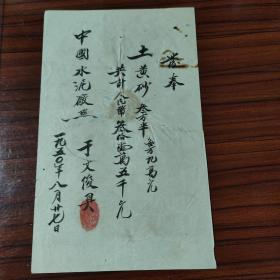 發奉
土黄砂 叁方半 每方九萬元
共計人民幣 叁拾壹萬五千元
中國水泥廠 照
于文俊具
一九五〇年八月廿七日